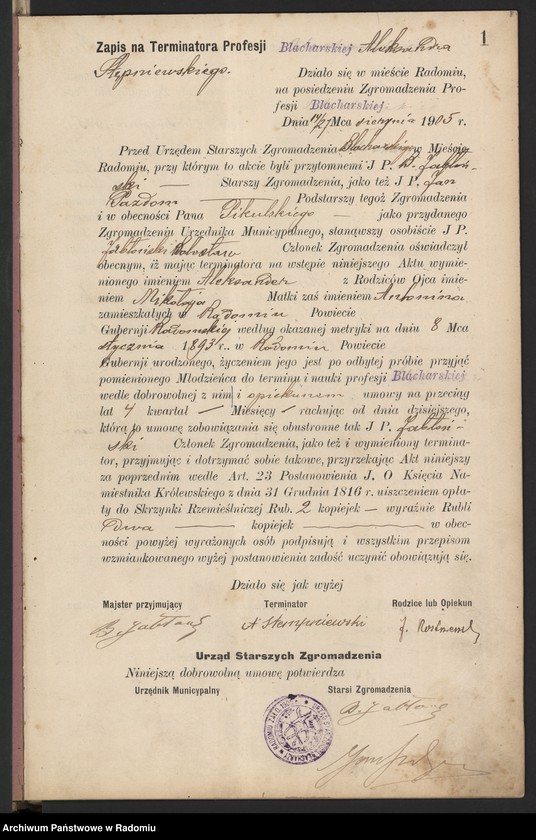 1
Zapis na Terminatora Profesji Blacharskiej Aleksandra
Stępniewskiego.
Działo się w mieście Radomiu,
na posiedzeniu Zgromadzenia Pro-
fesji Blacharskiej
Dnia 14/27 Mca sierpnia 1905 r.
Przed Urzędem Starszych Zgromadzenia Blacharskiego w Mieście
Radomiu, przy którym to akcie byli przytomnemi J P. B. Jabłoń-
ski — Starszy Zgromadzenia, jako też J P. Jan
Pazdom — Podstarszy tegoż Zgromadzenia
i w obecności Pana Pikulskiego — jako przydanego
Zgromadzeniu Urzędnika Municypalnego, stanąwszy osobiście J P.
Jabłoński Członek Zgromadzenia oświadczył
obecnym, iż mając terminatora na wstępie niniejszego Aktu wymie-
nionego imieniem Aleksander z Rodziców Ojca imie-
niem Mikołaja Matki zaś imieniem Antonina
zamieszkałych w Radomiu Powiecie
Gubernji Radomskiej według okazanej metryki na dniu 8 Mca
stycznia 1893 r. w Radomiu Powiecie
Gubernji urodzonego, życzeniem jego jest po odbytej próbie przyjąć
pomienionego Młodzieńca do terminu i nauki profesji Blacharskiej
wedle dobrowolnej z nim i opiekunem umowy na przeciąg
lat 4 kwartał — Miesięcy — rachując od dnia dzisiejszego,
którą to umowę zobowiązania się obustronne tak J P. Jabłoń-
ski Członek Zgromadzenia, jako też i wymieniony termina-
tor, przyjmując i dotrzymać sobie takowe, przyrzekając Akt niniejszy
za poprzednim wedle Art. 23 Postanowienia J. O Księcia Na-
miestnika Królewskiego z dnia 31 Grudnia 1816 r. uiszczeniem opła-
ty do Skrzynki Rzemieślniczej Rub. 2 kopiejek — wyraźnie Rubli
Dwa — kopiejek — w obec-
ności powyżej wyrażonych osób podpisują i wszystkim przepisom
wzmiankowanego wyżej postanowienia zadość uczynić obowiązują się.
Działo się jak wyżej
Majster przyjmujący Terminator Rodzice lub Opiekun
B. Jabłoń A Stempniewski J.
Urząd Starszych Zgromadzenia
Niniejszą dobrowolną umowę potwierdza
Urzędnik Municypalny Starsi Zgromadzenia
B. Jabłoń
Archiwum Państwowe w Radomiu